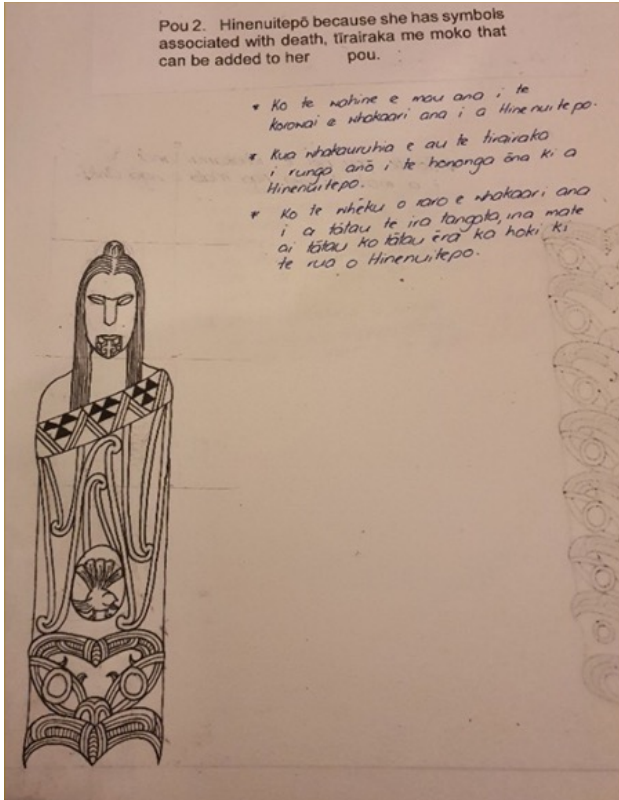 Pou 2. Hinenuitepō because she has symbols
associated with death, tīrairaka me moko that
can be added to her pou.
• Ko te wahine e mau ana i te
korowai e whakaari ana i a Hinenuitepo.
• Kua whakauruhia e au te tirairaka
i runga anō i te hononga ōna ki a
Hinenuitepo.
• Ko te whēku o raro e whakaari ana
i a tātau te ira tangata, ina mate
ai tātau ko tātau ērā ka hoki ki
te rua o Hinenuitepo.